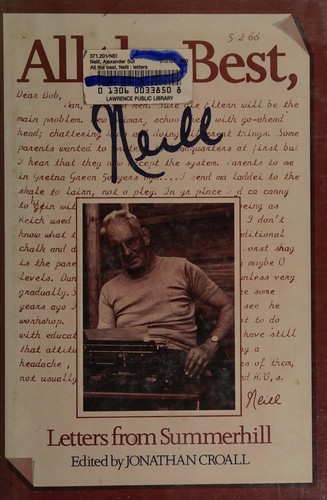 5.2.66
All the Best,
371.201/NEI
Neill, Alexander Sut
All the best, Neill : letters
0 1306 0033850 8
LAWRENCE PUBLIC LIBRARY
Neill
Dear Bob,
will be the
main problem. with go-ahead
head; chattering doing things. Some
parents wanted to at first but
I hear that they the system. Parents to me
in Gretna Green send ma laddei to the
shale to lairn, not o pley. In yr place ca canny
to being as
Reich used I don't
know what ditional
chalk and d orst shag
is the pare maybe O
levels. nless very
gradually. some
years ago I see he
workshop. t to do
with educat have still
that attitu y a
headache, s of them,
not usually nd H.G,s.
Neill
Letters from Summerhill
Edited by JONATHAN CROALL